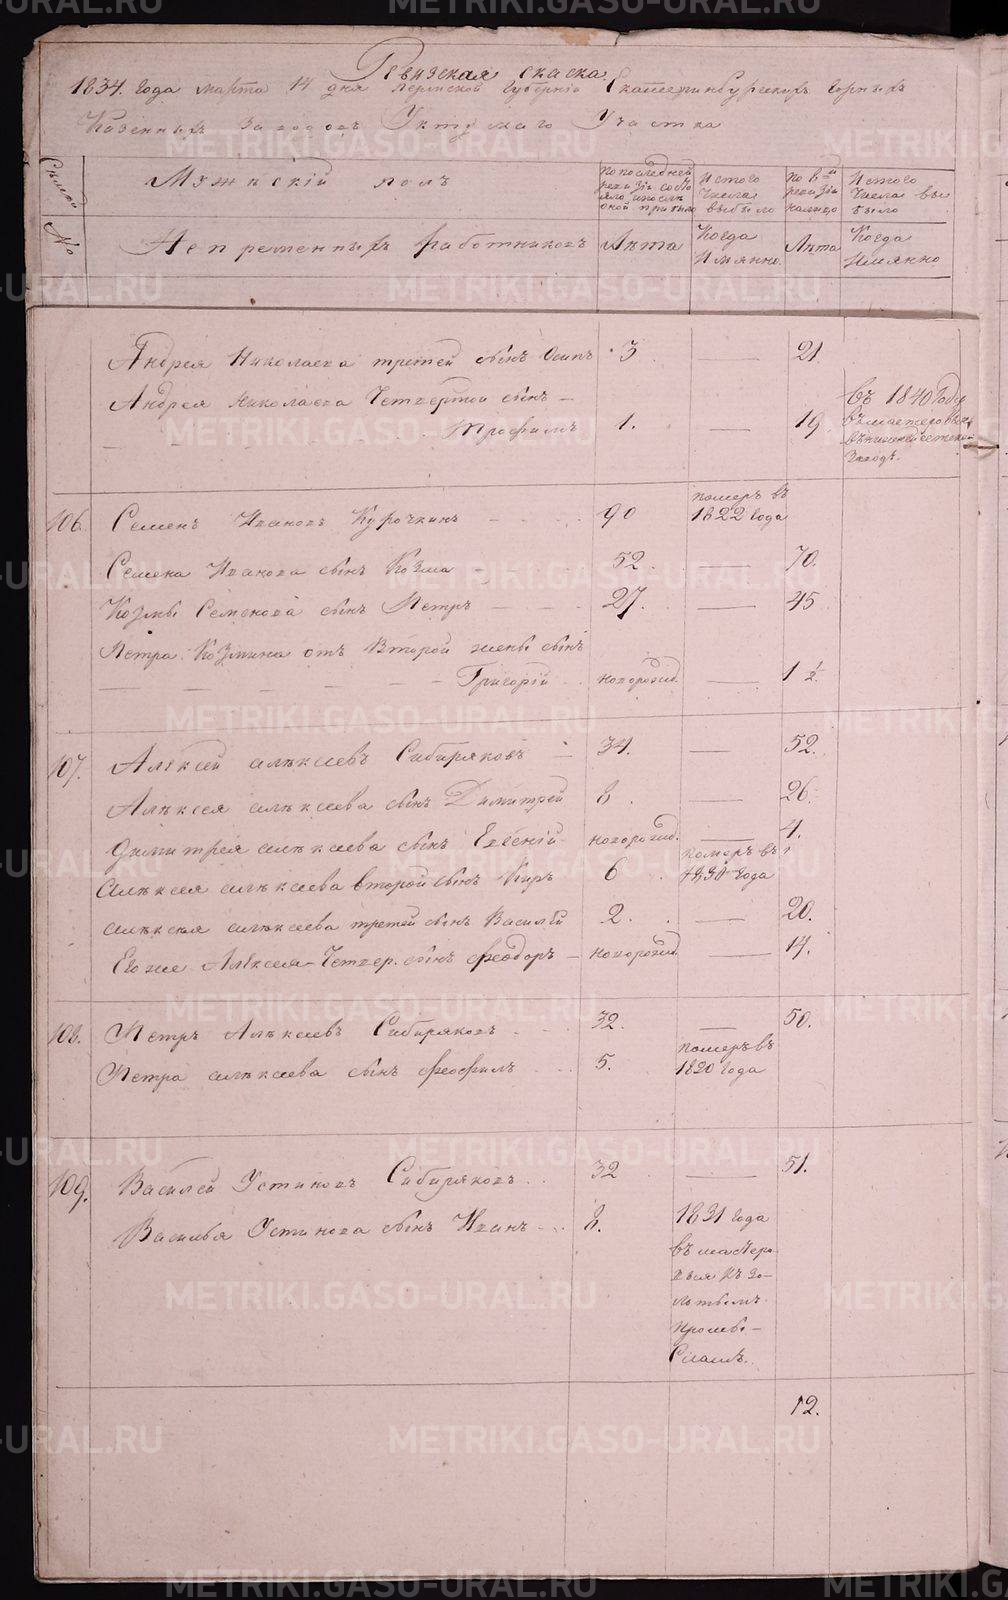 Ревизская скаска
1834. года марта 14 дня Пермской Губернiи Екатеринбургскихъ горныхъ
Казенныхъ Заводовъ Уктускаго Участка
Семей №
Мужескiй полъ
Непременныхъ работниковъ
По последней ревизiи состояло и после оной прибыло
Лѣта
Из того числа выбыло
Когда Имянно.
По 8й ревизiи налицо
Лѣта
Из того числа выбыло
Когда Имянно
Андрея Николаева третей сынъ Осипъ 3 — 21.
Андрея Николаева Четвертой сынъ —
Трофимъ 1. — 19
въ 1840 года
въ мастеровые
въ нижнеисетской
Заводъ.
106. Семенъ Ивановъ Курочкинъ 90 померъ въ
1822 года
Семена Иванова сынъ Козма 52 — 70.
Козмы Семенова сынъ Петръ 27. — 45
Петра Козмина отъ Второй жены сынъ
Григорiй новорожд. — 1 ½.
107. Алексей алексеевъ Сибиряковъ — 34. — 52.
Алексея алексеева сынъ Димитрей 8. — 26.
Димитрея алексеева сынъ Евгенiй новорожд. — 4.
алексея алексеева второй сынъ Киръ 6 померъ въ
1830 года
алексея алексеева третей сынъ Василей 2. — 20.
Его же Алексея Четвер. сынъ Феодоръ — новорожд. — 14.
108. Петръ Алексеевъ Сибиряковъ 32. — 50.
Петра алексеева сынъ Феофилъ 5. померъ въ
1820 года
109. Василей Устиновъ Сибиряковъ 32 — 51.
Василья Устинова сынъ Иванъ 8. 1831 года
въ масте́ро-
выя къ зо-
лотымъ
Промы-
сламъ.
12.
METRIKI.GASO-URAL.RU